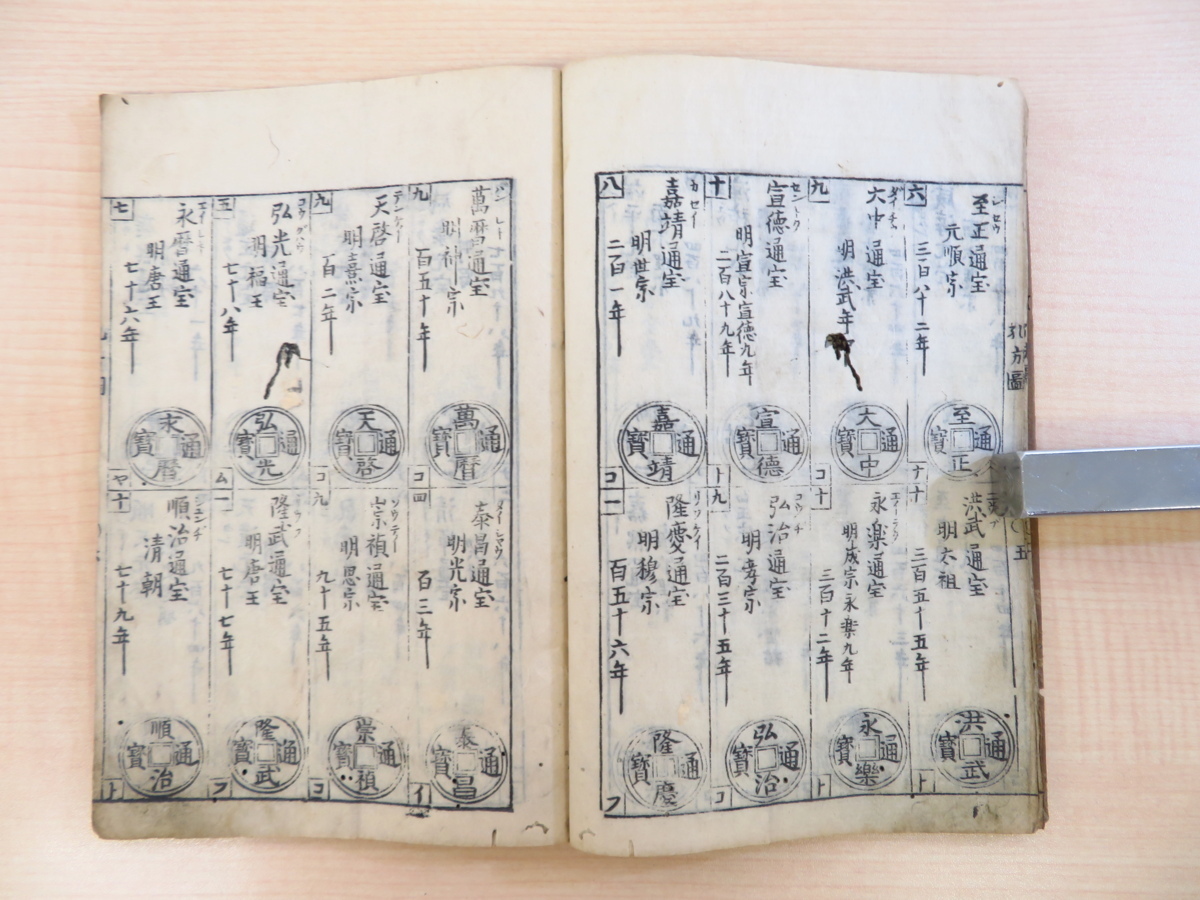 孔方圖
五
六
至正通宝
元順宗
三百八十二年
至正通寳
ナ
十
洪武通宝
明太祖
三百五十五年
洪武通寳
ト
九
大中通宝
明洪武年
大中通寳
コ
十
永楽通宝
明成宗永楽九年
三百十二年
永樂通寳
ト
十
セントク
宣德通宝
明宣宗宣德九年
二百八十九年
宣德通寳
ト
九
コウチ
弘治通宝
明孝宗
二百三十五年
弘治通寳
コ
八
カセイ
嘉靖通宝
明世宗
二百一年
嘉靖通寳
コ
十一
リウケイ
隆慶通宝
明穆宗
百五十六年
隆慶通寳
フ
九
萬暦通宝
明神宗
百五十年
萬暦通寳
コ
四
泰昌通宝
明光宗
百三年
泰昌通寳
イ
九
テンケー
天啓通宝
明熹宗
百二年
天啓通寳
コ
九
ソウテー
崇禎通宝
明思宗
九十五年
崇禎通寳
コ
五
弘光通宝
明福王
七十八年
弘光通寳
ム
一
隆武通宝
明唐王
七十七年
隆武通寳
フ
七
エイレキ
永暦通宝
明唐王
七十六年
永暦通寳
ヤ
十
ジュンヂ
順治通宝
清朝
七十九年
順治通寳
ト